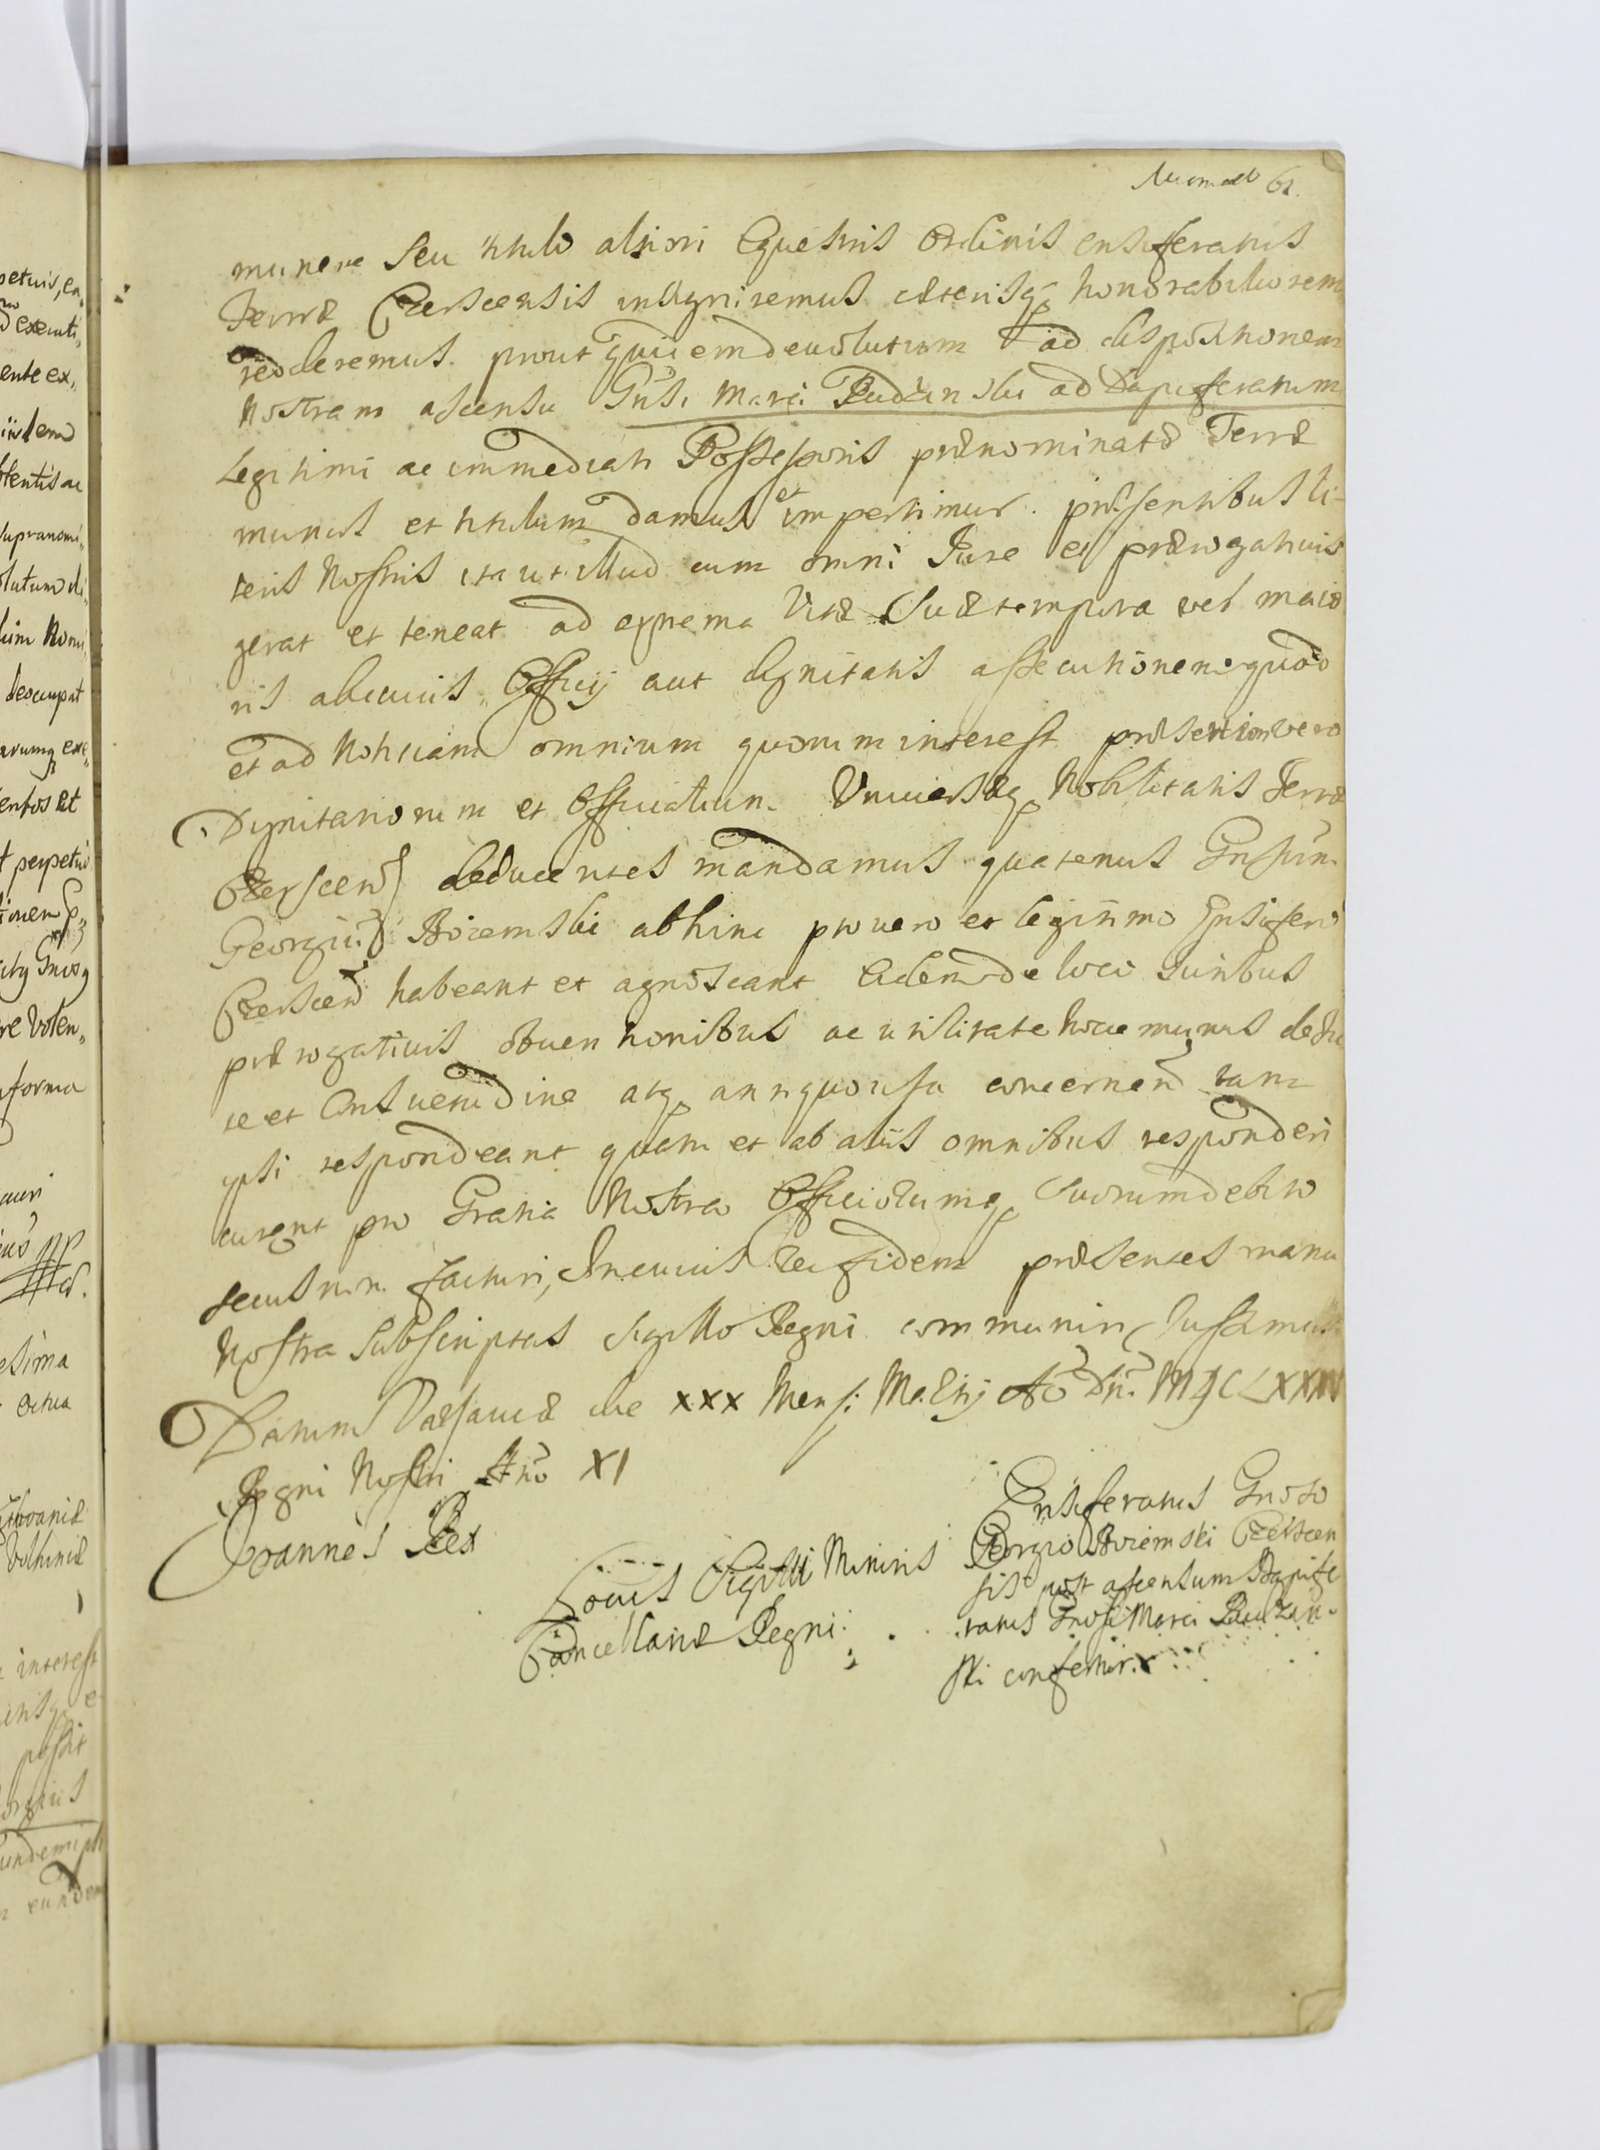 61.
munere seu titulo altiori Equestris Ordinis ensiferatus
Terræ Czerscensis insigniremus cæterisq honorabiliorem
redderemus. prout quidem devolutum ad dispositionem
Nostram ascensu Gnsi Marci Budzinski ad Dapiferatum
Legitimi ac immediati Possessoris prænominatæ Terræ
munus et titulum damus et impertimur. præsentibus li-
teris Nostris ita ut illud cum omni Jure et prærogativis
gerat et teneat ad extrema Vitæ Suæ tempora vel maio
ris alicuius Officij aut dignitatis assecutionem quod
et ad Notitiam omnium quorum interest præsertim vero
Dignitariorum et Officialium Universæq Nobilitatis Terræ
Czerscen deducentes mandamus quatenus Gnsum
Georgiu Boiemski abhinc pro vero et legitimo Ensifero
Czerscen habeant et agnoscant Eidemq de loci Juribus
prærogativis obventionibus ac utilitate hocce munus de Ju
re et Consuetudine atq antiquo usu concernen tam
ipsi respondeant quam et ab aliis omnibus responderi
curent pro Gratia Nostra Officiorumq Suorum debito
secus non facturi, In cuius rei fidem præsentes manu
Nostra Subscriptas Sigillo Regni communiri Jussimus
Datum Varsaviæ die XXX Mensi Martij Ao Dni MDCLXXXIV
Regni Nostri Anno XI
Joannes Rex
Locus Sigilli Minoris
Cancellariæ Regni
Ensiferatus Gnoso
Georgio Boiemski Czerscen
sis post ascensum Dapife
ratus Gnosi Marci Budzin-
ski confertur.